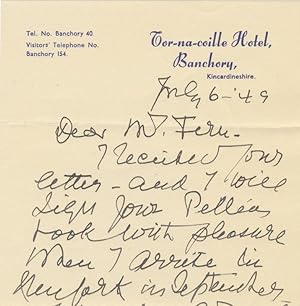 Tel. No. Banchory 40.
Visitors' Telephone No.
Banchory 154.
Tor-na-coille Hotel,
Banchory,
Kincardineshire.
July 6-'49
Dear Mr. Fern-
I received your
letter - and I will
sign your Pelléas
book with pleasure
when I arrive in
New York in September